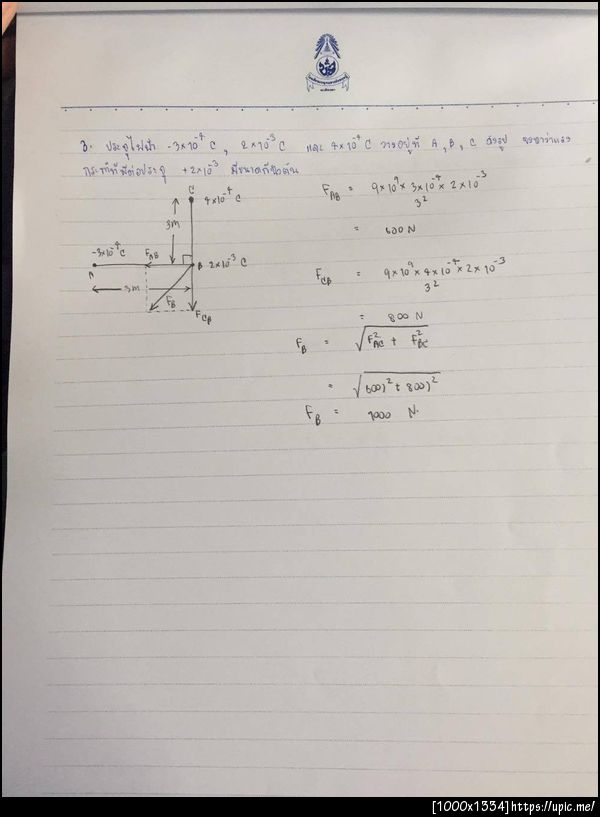 3. ประจุไฟฟ้า -3×10⁻⁴ C , 2×10⁻³ C และ 4×10⁻⁴ C วางอยู่ที่ A , B , C ดังรูป จงหาว่าแรง
กระทำที่มีต่อประจุ +2×10⁻³ มีขนาดกี่นิวตัน
C
4×10⁻⁴ C
3m
-3×10⁻⁴ C
F_AB
A
B 2×10⁻³ C
3m
F_B
F_CB
F_AB = 9×10⁹ × 3×10⁻⁴ × 2×10⁻³
3²
= 600 N
F_CB = 9×10⁹ × 4×10⁻⁴ × 2×10⁻³
3²
= 800 N
F_B = √F²_AC + F²_BC
= √600)² + 800)²
F_B = 1000 N.
[1000x1334]https://upic.me/